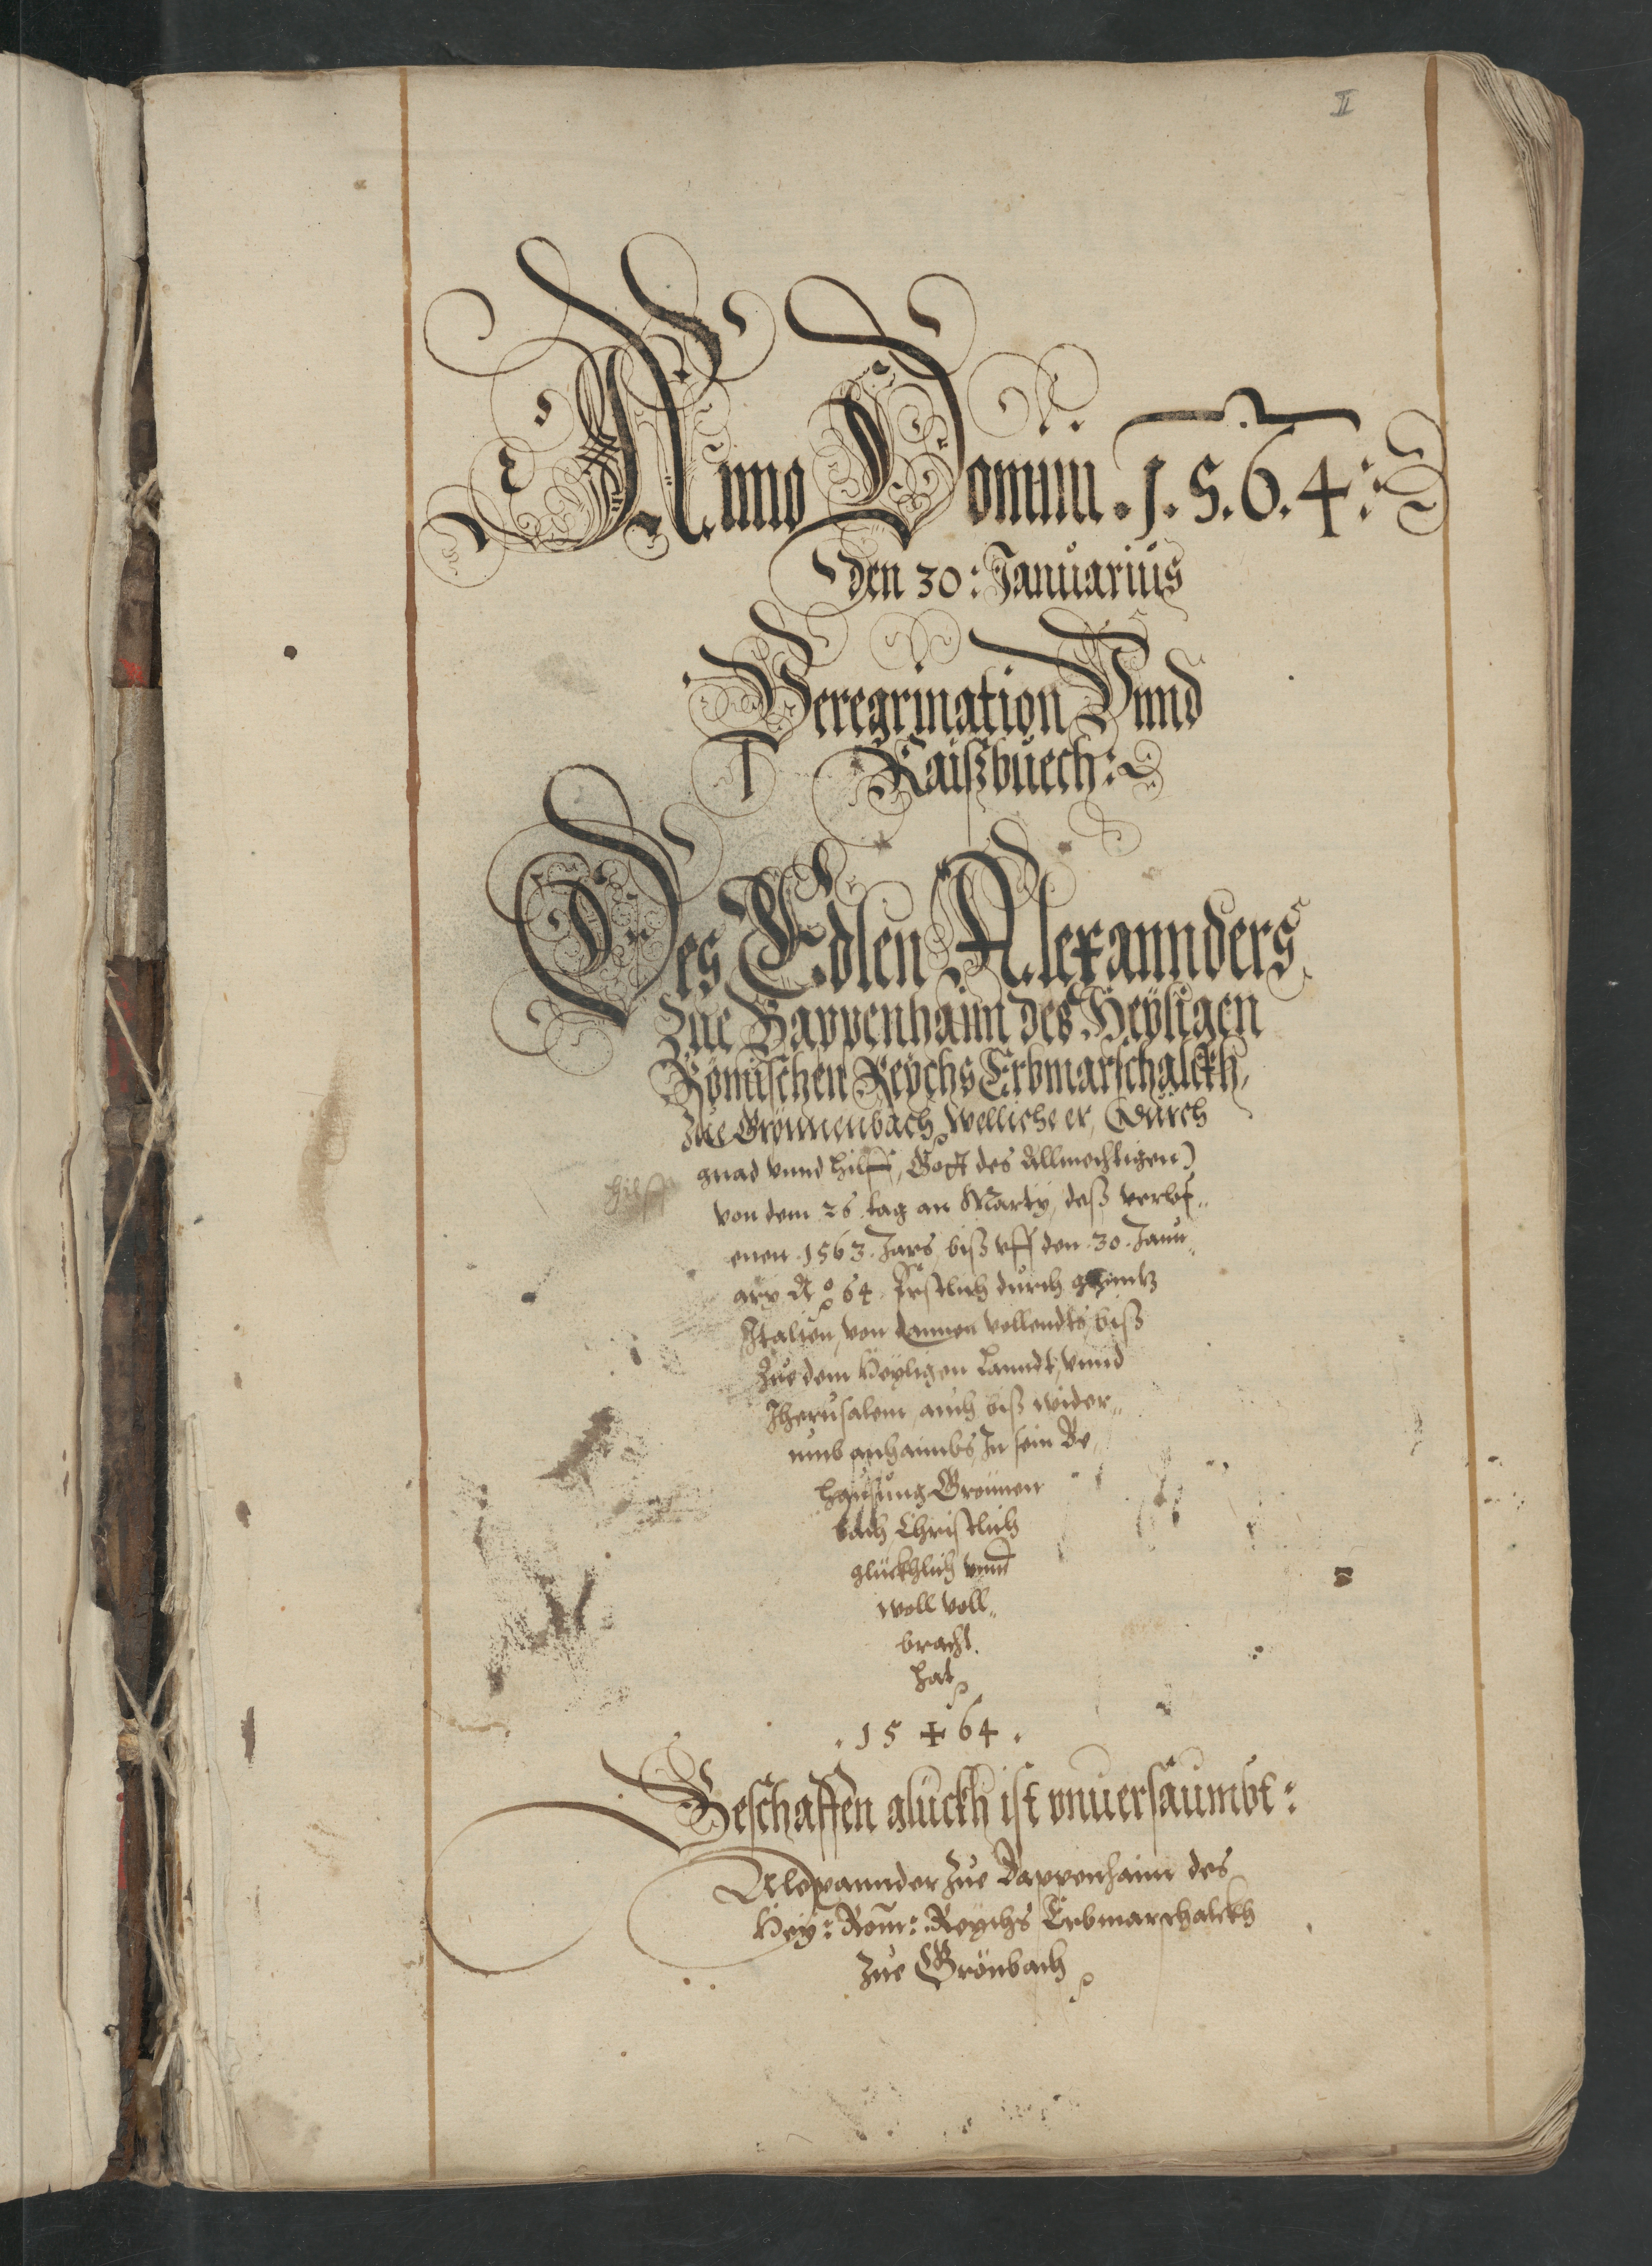 II
Anno Domini .1.5.6.4:
den 30: Januarius
Peregrination Vnnd
Raißbuech:
Des Edlen Alexannders
Zue Bappenhaim des Heyligen
Römischen Reychs Erbmarschalckh,
Zue Grönnenbach, Welliche er, (Durch
gnad vnnd hilff, Gott des Allmechtigen)
hilff
von dem .26. tag an Marty, deß verlof„
enen .1563. Jars, biß vff den .30. Janu„
ary Aº 64. Erstlich durch gantz
Italien, von dannen vollendts, biß
Zue dem Heyligen Lanndt, vnnd
Jherusalem, auch biß wider„
umb anhaimbs, In sein Be„
hausung Grönnen
bach, Christlich
glückhlich vnnd
woll voll„
bracht.
hat,
. 15 + 64 .
Beschaffen glückh ist vnuersaumbt:
Alexannder Zue Bappenhaim des
Hey: Röm: Reychs Erbmarschalckh
Zue Grönbach,